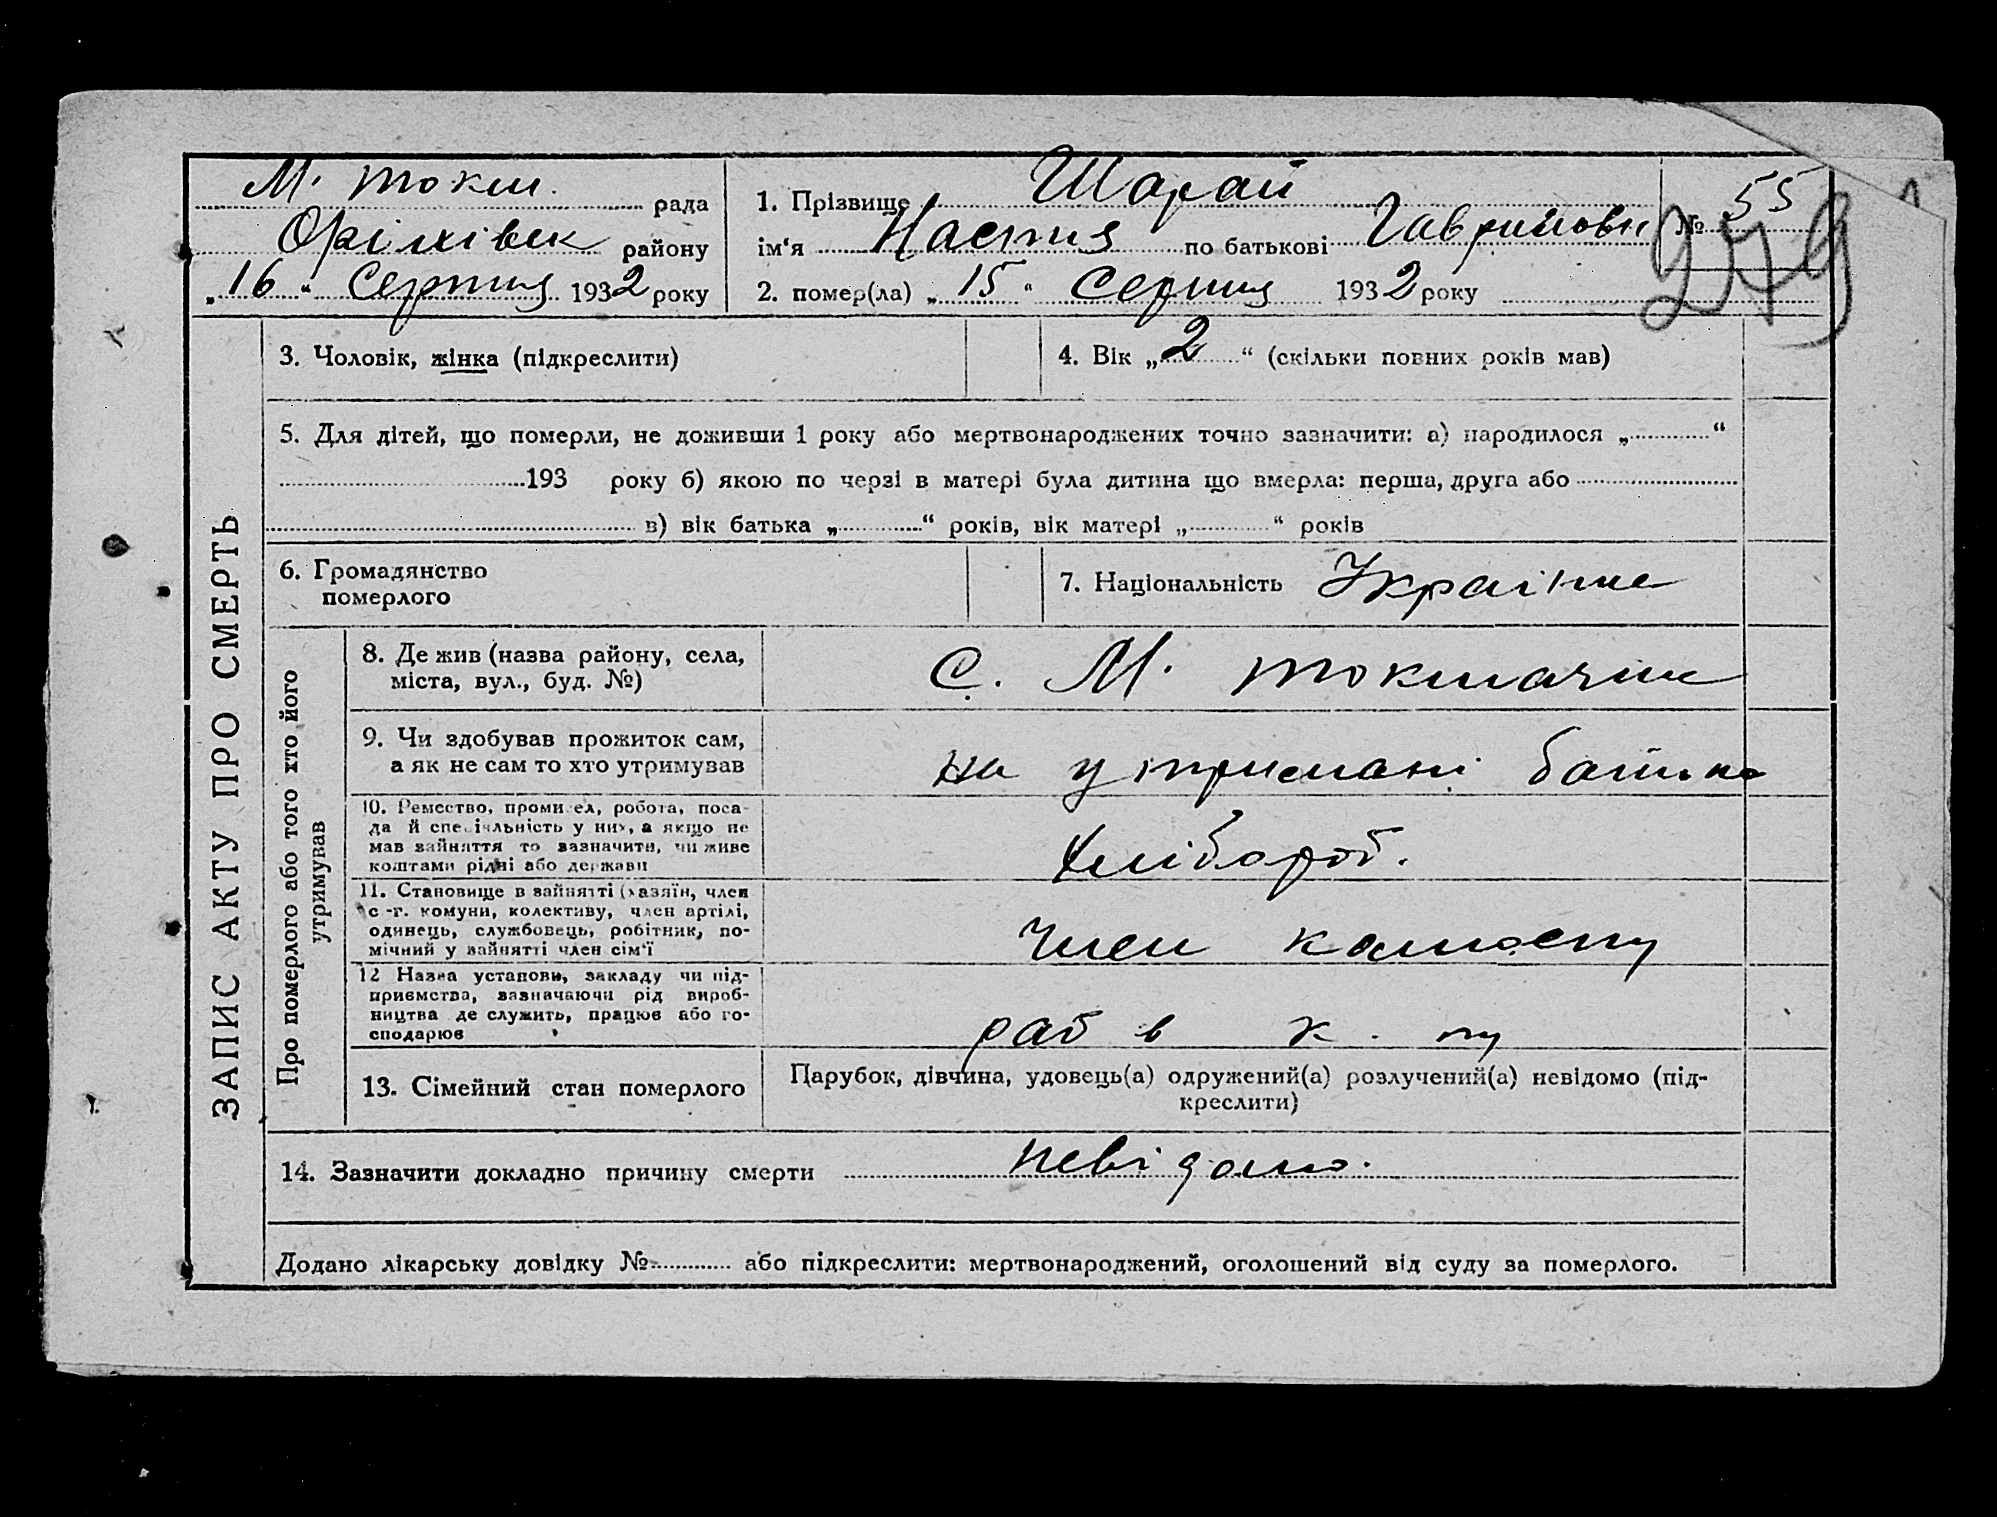 М. Токм. рада
Оріхівськ району
„16“ Серпня 1932 року
1. Прізвище Шарай
ім‘я Настя по батькові Гавриловн
№ 55
279
2. помер(ла) „15“ Серпня 1932 року
ЗАПИС АКТУ ПРО СМЕРТЬ
3. Чоловік, жінка (підкреслити)
4. Вік „2“ (скільки повних років мав)
5. Для дітей, що померли, не доживши 1 року або мертвонароджених точно зазначити: а) народилося „ “
193 року б) якою по черзі в матері була дитина що вмерла: перша, друга або
в) вік батька „ “ років, вік матері „ “ років
6. Громадянство
померлого
7. Національність Украінка
Про померлого або того хто його
утримував
8. Де жив (назва району, села,
міста, вул., буд. №)
С. М. Токмачик
9. Чи здобував прожиток сам,
а як не сам то хто утримував
на утримані батька
10. Ремество, промисел, робота, поса-
да й спеціяльність у них, а якщо не
мав зайняття то зазначити, чи живе
коштами рідні або держави
хлібороб.
11. Становище в зайнятті (хазяїн, член
с.-г. комуни, колективу, член артілі,
одинець, службовець, робітник, по-
мічний у зайнятті член сім‘ї
Член
12 Назва установи, закладу чи під-
приємства, зазначаючи рід вироб-
ництва де служить, працює або го-
сподарює
раб в к.
13. Сімейний стан померлого
Парубок, дівчина, удовець(а) одружений(а) розлучений(а) невідомо (під-
креслити)
14. Зазначити докладно причину смерти невідомо.
Додано лікарську довідку № або підкреслити: мертвонароджений, оголошений від суду за померлого.